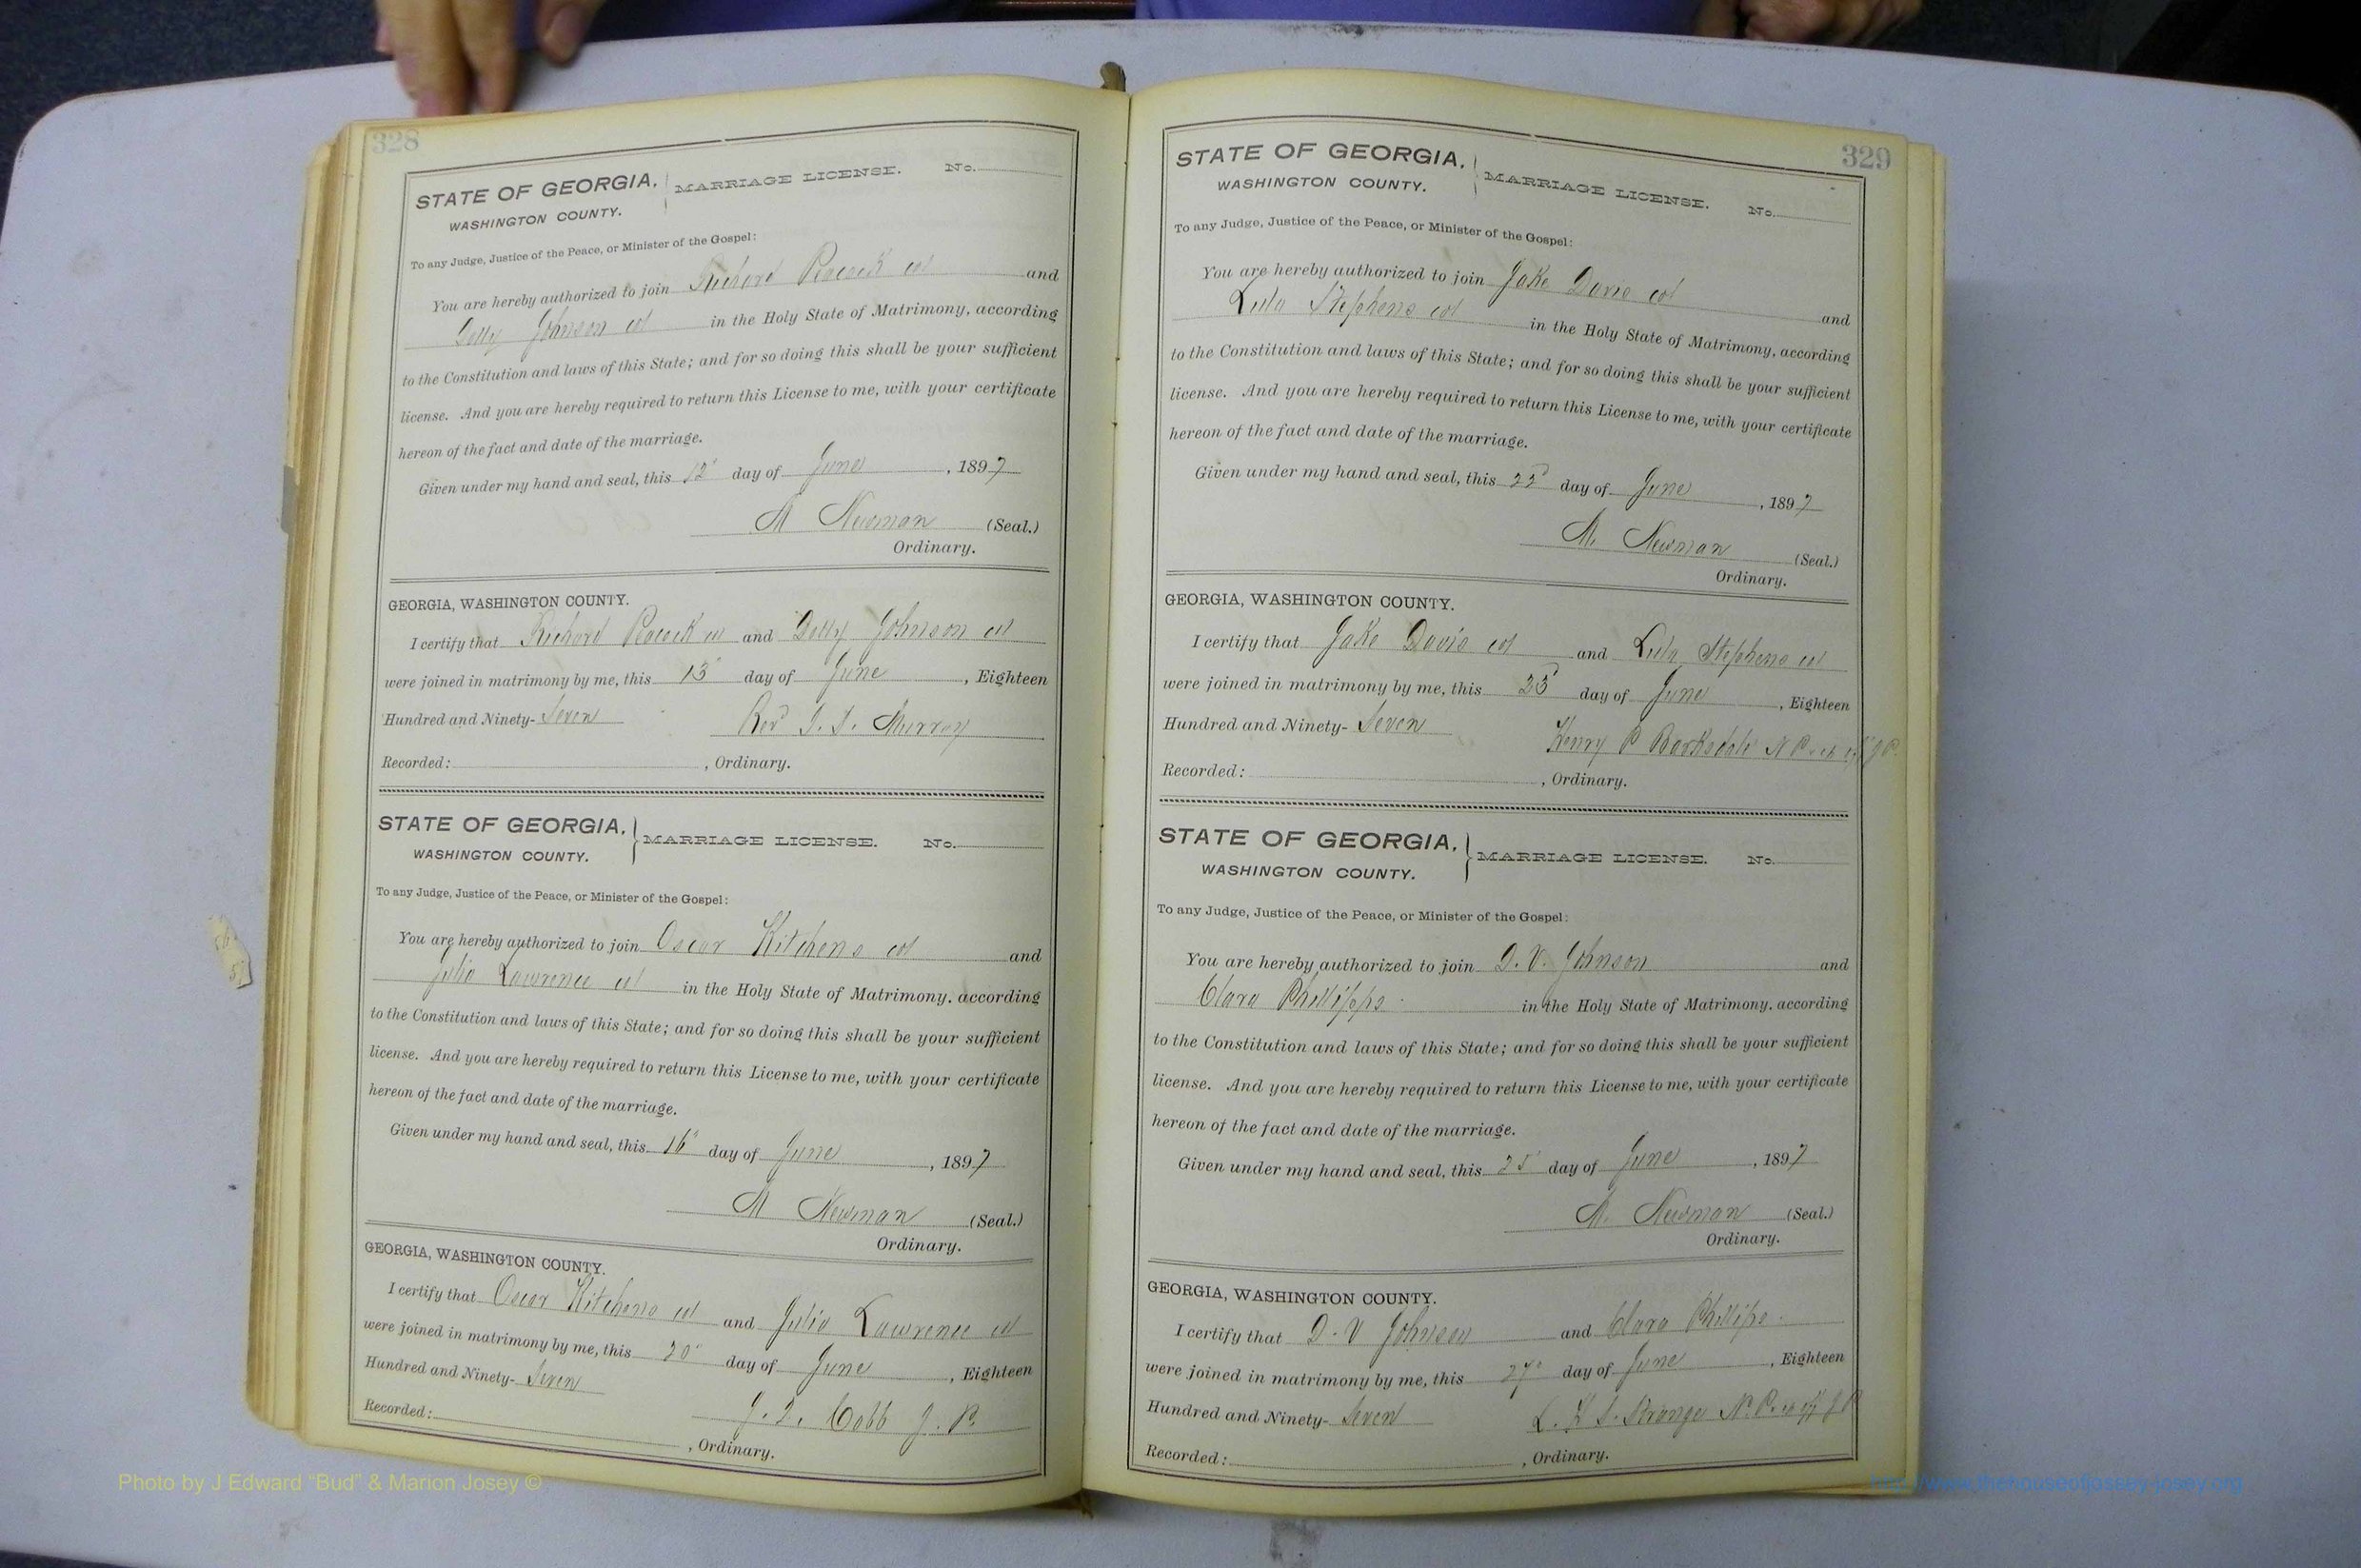 328
STATE OF GEORGIA, MARRIAGE LICENSE. No.
WASHINGTON COUNTY.
To any Judge, Justice of the Peace, or Minister of the Gospel:
You are hereby authorized to join Richard Peacock col and
Dolly Johnson col in the Holy State of Matrimony, according
to the Constitution and laws of this State; and for so doing this shall be your sufficient
license. And you are hereby required to return this License to me, with your certificate
hereon of the fact and date of the marriage.
Given under my hand and seal, this 12" day of June, 1897
M Newman (Seal.)
Ordinary.
GEORGIA, WASHINGTON COUNTY.
I certify that Richard Peacock col and Dolly Johnson col
were joined in matrimony by me, this 13" day of June, Eighteen
Hundred and Ninety-Seven Rev Murray
Recorded: , Ordinary.
STATE OF GEORGIA, MARRIAGE LICENSE. No.
WASHINGTON COUNTY.
To any Judge, Justice of the Peace, or Minister of the Gospel:
You are hereby authorized to join Oscar Kitchens col and
Julia Lawrence col in the Holy State of Matrimony, according
to the Constitution and laws of this State; and for so doing this shall be your sufficient
license. And you are hereby required to return this License to me, with your certificate
hereon of the fact and date of the marriage.
Given under my hand and seal, this 16" day of June, 1897
M Newman (Seal.)
Ordinary.
GEORGIA, WASHINGTON COUNTY.
I certify that Oscar Kitchens col and Julia Lawrence col
were joined in matrimony by me, this 20" day of June, Eighteen
Hundred and Ninety-Seven
J. T. Cobb J. P.
Recorded: , Ordinary.
329
STATE OF GEORGIA, MARRIAGE LICENSE. No.
WASHINGTON COUNTY.
To any Judge, Justice of the Peace, or Minister of the Gospel:
You are hereby authorized to join Jake Davis col and
Lula Stephens col in the Holy State of Matrimony, according
to the Constitution and laws of this State; and for so doing this shall be your sufficient
license. And you are hereby required to return this License to me, with your certificate
hereon of the fact and date of the marriage.
Given under my hand and seal, this day of June, 1897
M. Newman (Seal.)
Ordinary.
GEORGIA, WASHINGTON COUNTY.
I certify that Jake Davis col and Lula Stephens col
were joined in matrimony by me, this day of June, Eighteen
Hundred and Ninety-Seven Henry P Barksdale N P & ex off J P.
Recorded: , Ordinary.
STATE OF GEORGIA, MARRIAGE LICENSE. No.
WASHINGTON COUNTY.
To any Judge, Justice of the Peace, or Minister of the Gospel:
You are hereby authorized to join D. V. Johnson and
Clara Phillips in the Holy State of Matrimony, according
to the Constitution and laws of this State; and for so doing this shall be your sufficient
license. And you are hereby required to return this License to me, with your certificate
hereon of the fact and date of the marriage.
Given under my hand and seal, this 25" day of June, 1897
M. Newman (Seal.)
Ordinary.
GEORGIA, WASHINGTON COUNTY.
I certify that D. V Johnson and Clara Phillips
were joined in matrimony by me, this 27" day of June, Eighteen
Hundred and Ninety-Seven Strange N. P. & ex off J P
Recorded: , Ordinary.
Photo by J Edward "Bud" & Marion Josey ©
http://www.thehouseofjossey-josey.org